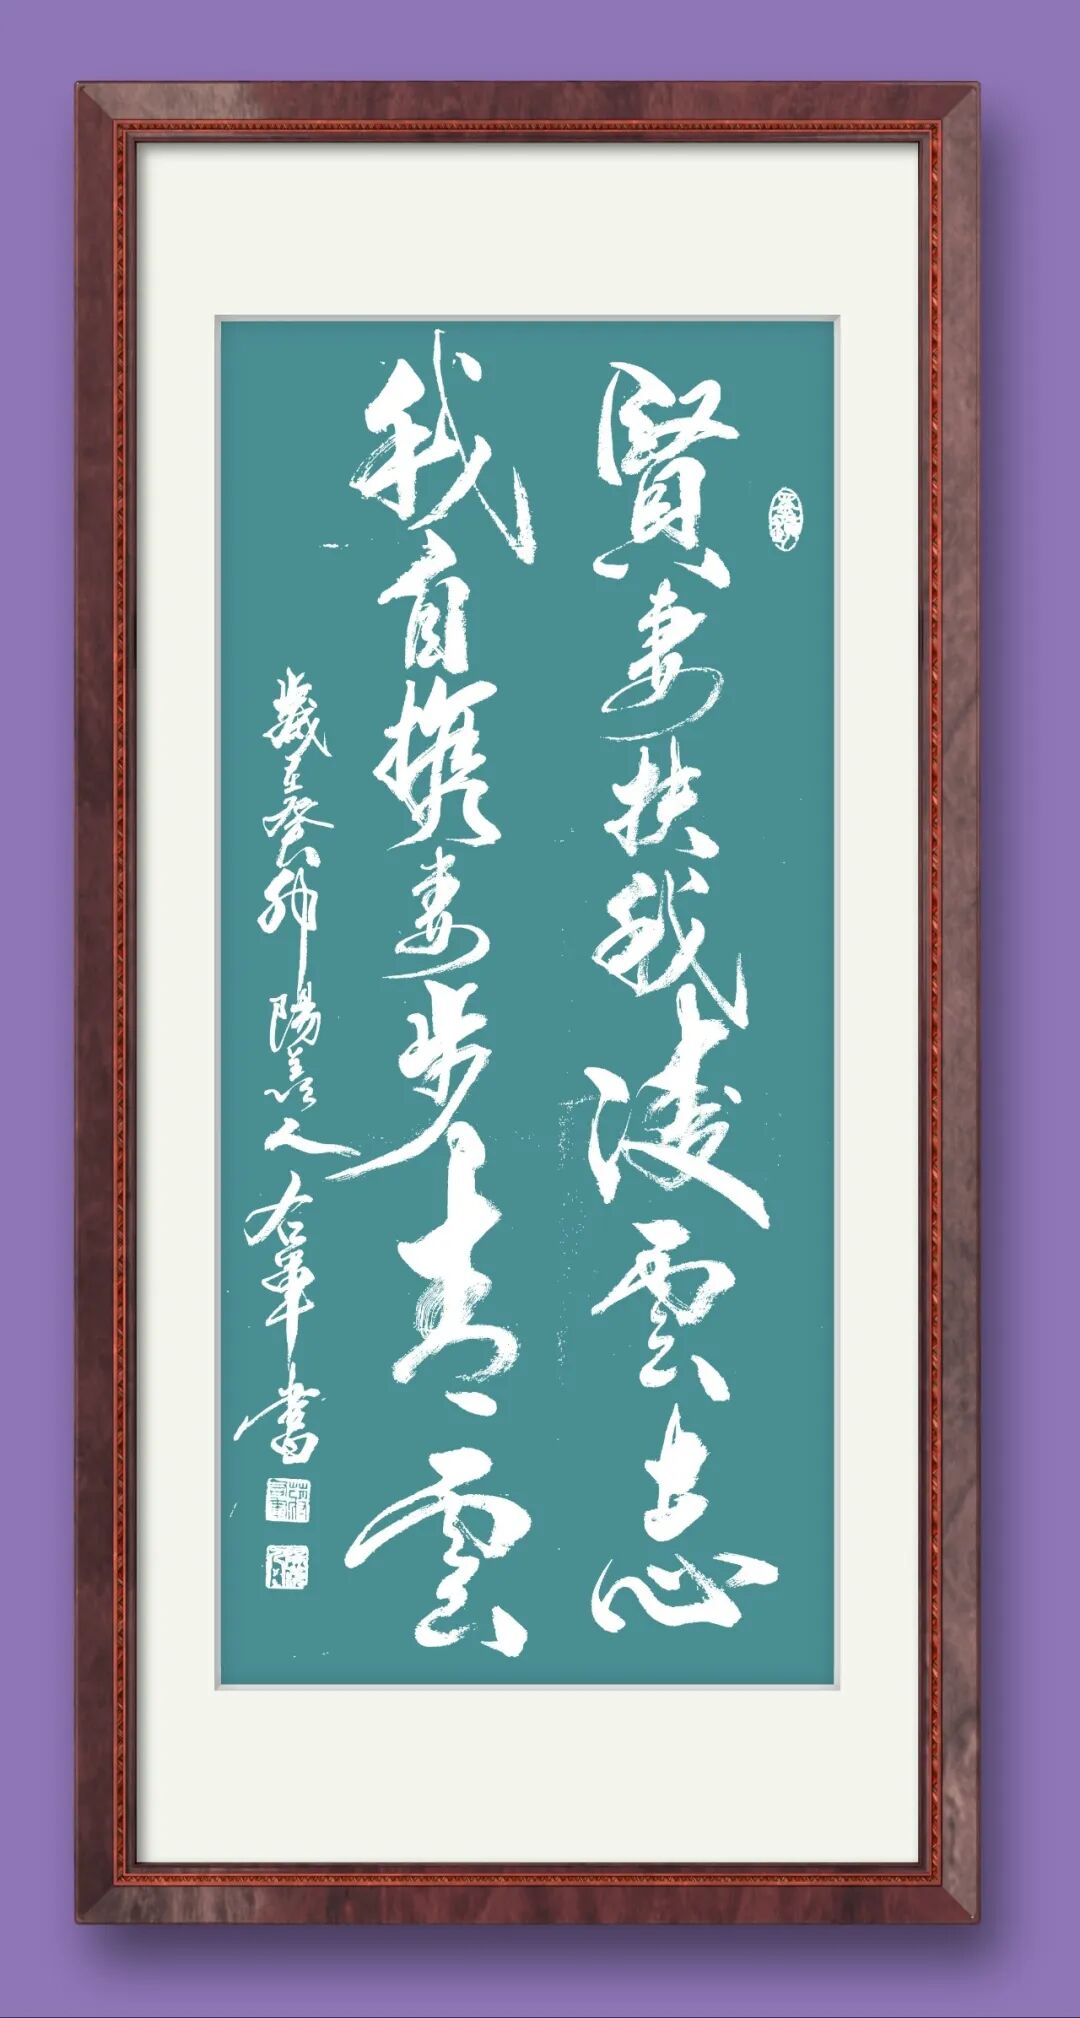 賢妻扶我凌雲志
我自携妻步青雲
歲在癸卯陽羨人右軍書